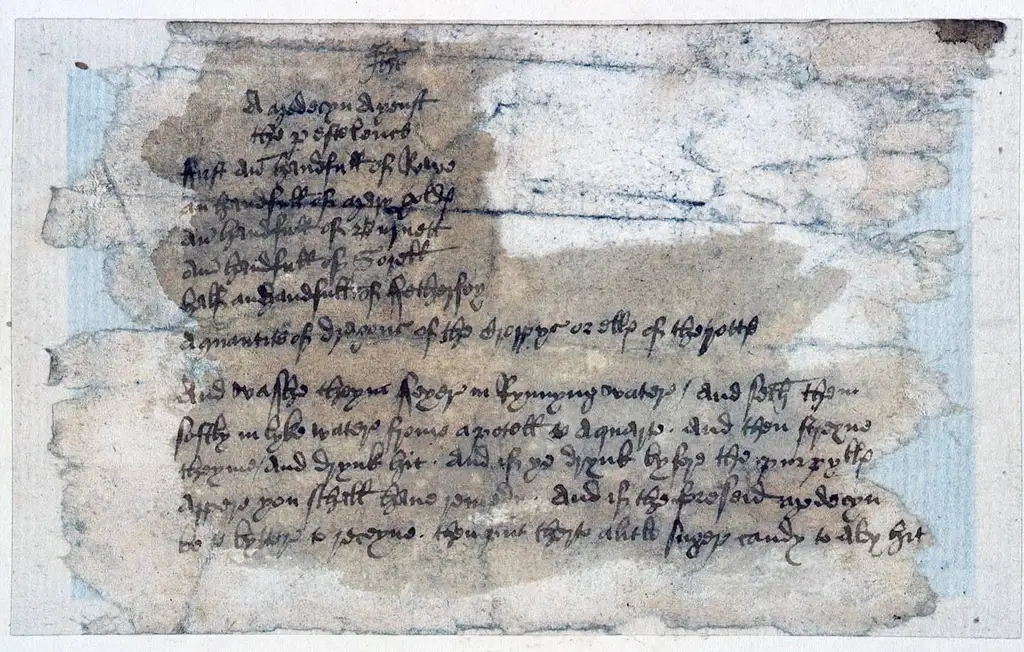 Ihc
A medecyn Ayenst
the pestelence
First an handfull of Rewe
an handfull of mary goldys
an handfull of Burnett
an handfull of Sorell
half an handfull of Fetherfoy
A quantite of dragons of the croppe or ellys of the rotts
And wasshe theym feyer in Rynnyng watere / And seth them
softly in lyke watere frome a potell to A quarte . And then streyne
theyme / And drynk hit . And if ye drynk hit byfore the purpyllys
Appere you shall haue remedy . And if the foreseid medecyn
be to bytter to receyue . then put therto alitill suger candy to Alay hit